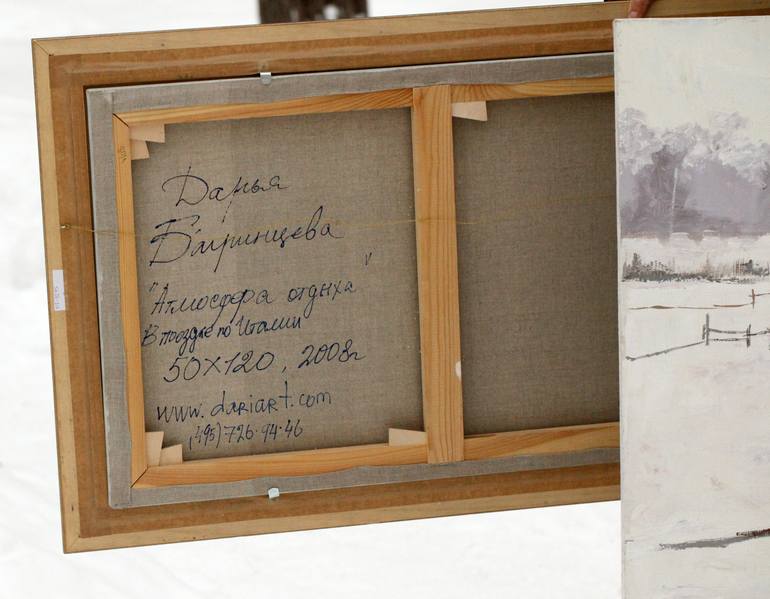 Дарья
Багринцева
"Атмосфера отдыха"
В поездке по Италии
50×120, 2008г
www.dariart.com
(495)726-94-46